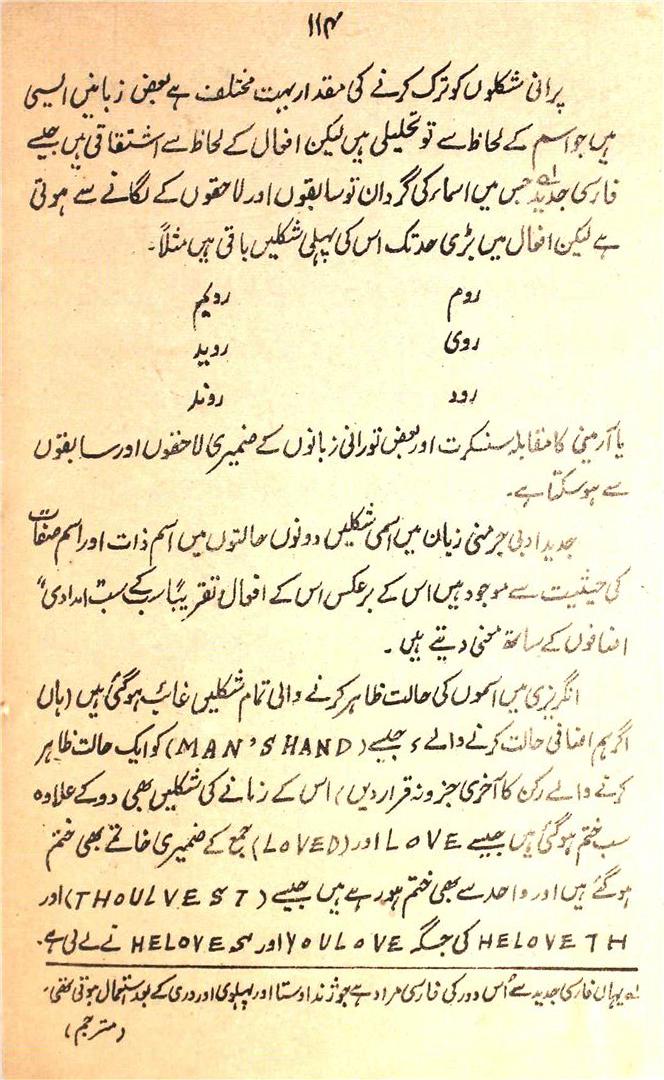 ۱۱۴
پرانی شکلوں کو ترک کرنے کی مقدار بہت مختلف ہے بعض زبانیں ایسی
ہیں جو اسم کے لحاظ سے تو تحلیلی ہیں لیکن افعال کے لحاظ سے اشتقاقی ہیں جیسے
فارسی جدید لہ جس میں اسماء کی گردان تو سابقوں اور لاحقوں کے لگانے سے ہوتی
ہے لیکن افعال میں بڑی حد تک اس کی پہلی شکلیں باقی ہیں مثلاً۔
روم رویم
روی روید
رود روند
یا آرمنی کا مقابلہ سنسکرت اور بعض تورانی زبانوں کے ضمیری لاحقوں اور سابقوں
سے ہو سکتا ہے۔
جدید ادبی جرمنی زبان میں اسمی شکلیں دونوں حالتوں میں اسم ذات اور اسم صفات
کی حیثیت سے موجود ہیں اس کے برعکس اس کے افعال تقریباً سب کے سب "امدادی"
اضافوں کے ساتھ معنی دیتے ہیں ۔
انگریزی میں اسموں کی حالت ظاہر کرنے والی تمام شکلیں غائب ہو گئی ہیں (ہاں
اگر ہم اضافی حالت کرنے والے ء جیسے (MAN'S HAND) کو ایک حالت ظاہر
کرنے والے رکن کا آخری جز و نہ قرار دیں) اس کے زمانے کی شکلیں بھی دو کے علاوہ
سب ختم ہو گئی ہیں جیسے LOVE اور (LOVED) جمع کے ضمیری خاتمے بھی ختم
ہو گئے ہیں اور واحد سے بھی ختم ہو رہے ہیں جیسے (THOU LVEST) اور
HELOVETH کی جگہ YOU LOVE اور HELOVES نے لے لی ہے۔
لہ یہاں فارسی جدید سے اُس دور کی فارسی مراد ہے جو ژند اوستا اور پہلوی اور دری کے بعد استعمال ہوتی تھی۔
(مترجم)